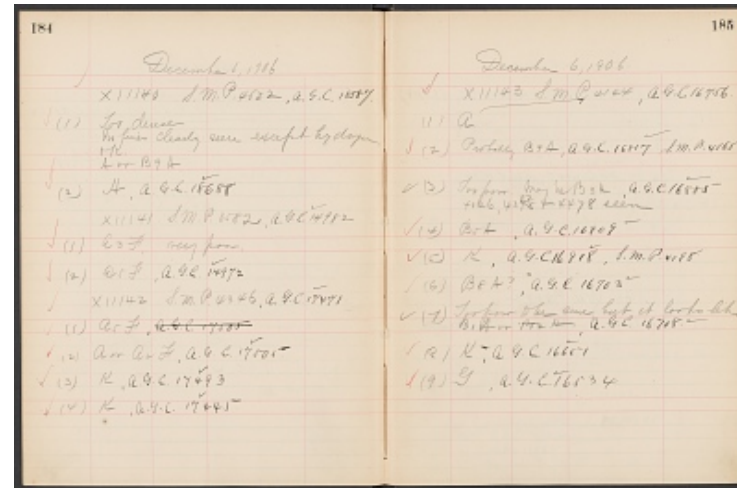 184
December 6, 1906
X 11140 S.M.P. 4522, A.G.C.
(1) Too dense
no lines clearly seen except hydrogen
A or B9A
(2) A, A.G.C. 15688
X11141 S.M.P. 1582, A.G.C. 14982
(1) G or F. very poor.
(2) G or F, A.G.C. 14972
X11142 S.M.P. 4346, A.G.C. 17471
(1) A or F, A.G.C. 17505
(2) A or A or F, A.G.C. 17505
(3) K, A.G.C. 17493
(4) K, A.G.C. 17445
185
December 6, 1906
X11143 S.M.P. 4144, A.G.C. 16756
(1) A
(2) Probably B9A, A.G.C. S.M.P. 4165
(3) Too poor. may be B9A, A.G.C. 16805
4386, 4398 & 4478 seen
(4) B9A, A.G.C. 16809
(5) K, A.G.C. 16918, S.M.P. 4198
(6) B9A?, A.G.C. 16703
(7) Too poor to be sure, but it looks like
B9A or A, A.G.C. 16708
(8) K, A.G.C. 16651
(9) G, A.G.C. 16534